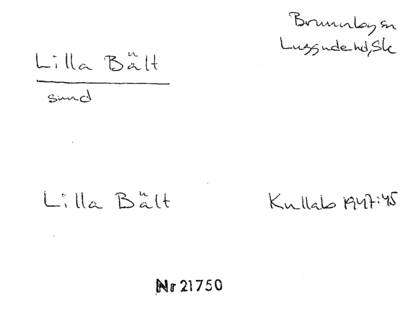 Brunnby sn
Luggude hd, Sk
Lilla Bält
sund
Lilla Bält
Kullab 1947:45
Nr 21750